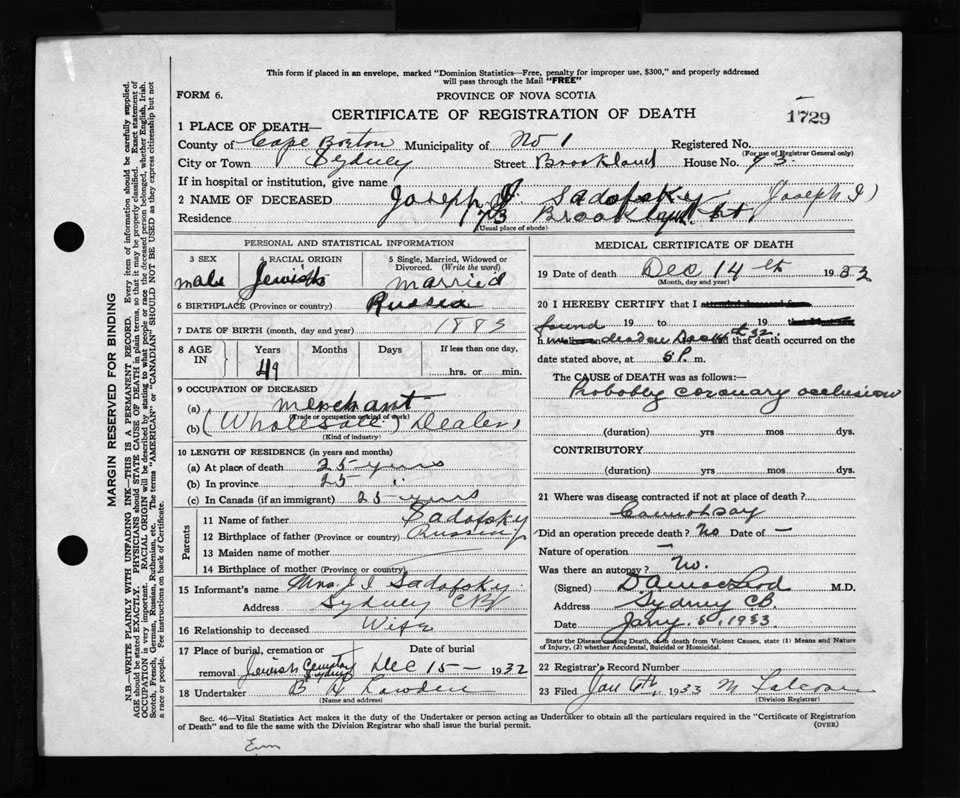 This form if placed in an envelope, marked "Dominion Statistics—Free, penalty for improper use, $300," and properly addressed
will pass through the Mail "FREE"
FORM 6.
PROVINCE OF NOVA SCOTIA
CERTIFICATE OF REGISTRATION OF DEATH
1729
1 PLACE OF DEATH—
County of Cape Breton Municipality of No 1 Registered No.
(For use of Registrar General only)
City or Town Sydney Street Brookland House No. 73.
If in hospital or institution, give name
2 NAME OF DECEASED Joseph I. Sadofsky (Joseph I)
Residence 73 Brookland St
(Usual place of abode)
PERSONAL AND STATISTICAL INFORMATION
3 SEX 4 RACIAL ORIGIN 5 Single, Married, Widowed or
Divorced. (Write the word)
male Jewish married
6 BIRTHPLACE (Province or country) Russia
7 DATE OF BIRTH (month, day and year) 1883
8 AGE IN Years Months Days If less than one day.
49 hrs. or min.
9 OCCUPATION OF DECEASED
(a) merchant
(Trade or occupation or kind of work)
(b) (Wholesale) Dealer,
(Kind of industry)
10 LENGTH OF RESIDENCE (in years and months)
(a) At place of death 25 yurs
(b) In province 25 "
(c) In Canada (if an immigrant) 25 yurs
Parents
11 Name of father Sadofsky
12 Birthplace of father (Province or country) Russia
13 Maiden name of mother
14 Birthplace of mother (Province or country)
15 Informant's name Mrs. J. I Sadofsky.
Address Sydney CB
16 Relationship to deceased Wife
17 Place of burial, cremation or Date of burial
removal Jewish Cemetery Sydney Dec 15 — 1932
18 Undertaker B H
(Name and address)
MEDICAL CERTIFICATE OF DEATH
19 Date of death Dec 14 th 1932
(Month, day and year)
20 I HEREBY CERTIFY that I attended deceased from
found 19 to 19
h dead on Dec 32 and that death occurred on the
date stated above, at 5 P. m.
The CAUSE OF DEATH was as follows:—
Probably coronary occlusion
(duration) yrs mos dys.
CONTRIBUTORY
(duration) yrs mos dys.
21 Where was disease contracted if not at place of death?
Cannot say
Did an operation precede death? No Date of —
Nature of operation —
Was there an autopsy? No.
(Signed) M.D.
Address Sydney CB.
Date Jany. 5, 1933
State the Disease causing Death, or in death from Violent Causes, state (1) Means and Nature
of Injury, (2) whether Accidental, Suicidal or Homicidal.
22 Registrar's Record Number
23 Filed Jan 6th, 1933 M
(Division Registrar)
Sec. 46—Vital Statistics Act makes it the duty of the Undertaker or person acting as Undertaker to obtain all the particulars required in the "Certificate of Registration
of Death" and to file the same with the Division Registrar who shall issue the burial permit.
(OVER)
MARGIN RESERVED FOR BINDING
N.B.—WRITE PLAINLY WITH UNFADING INK—THIS IS A PERMANENT RECORD. Every item of information should be carefully supplied.
AGE should be stated EXACTLY. PHYSICIANS should STATE CAUSE OF DEATH in plain terms, so that it may be properly classified. Exact statement of
OCCUPATION is very important. RACIAL ORIGIN will be described by stating to what people or race the deceased person belonged, whether English, Irish,
Scotch, French, German, Russian, Ruthenian, etc. The terms "AMERICAN" or "CANADIAN" SHOULD NOT BE USED as they express citizenship but not
a race or people. Fee instructions on back of Certificate.